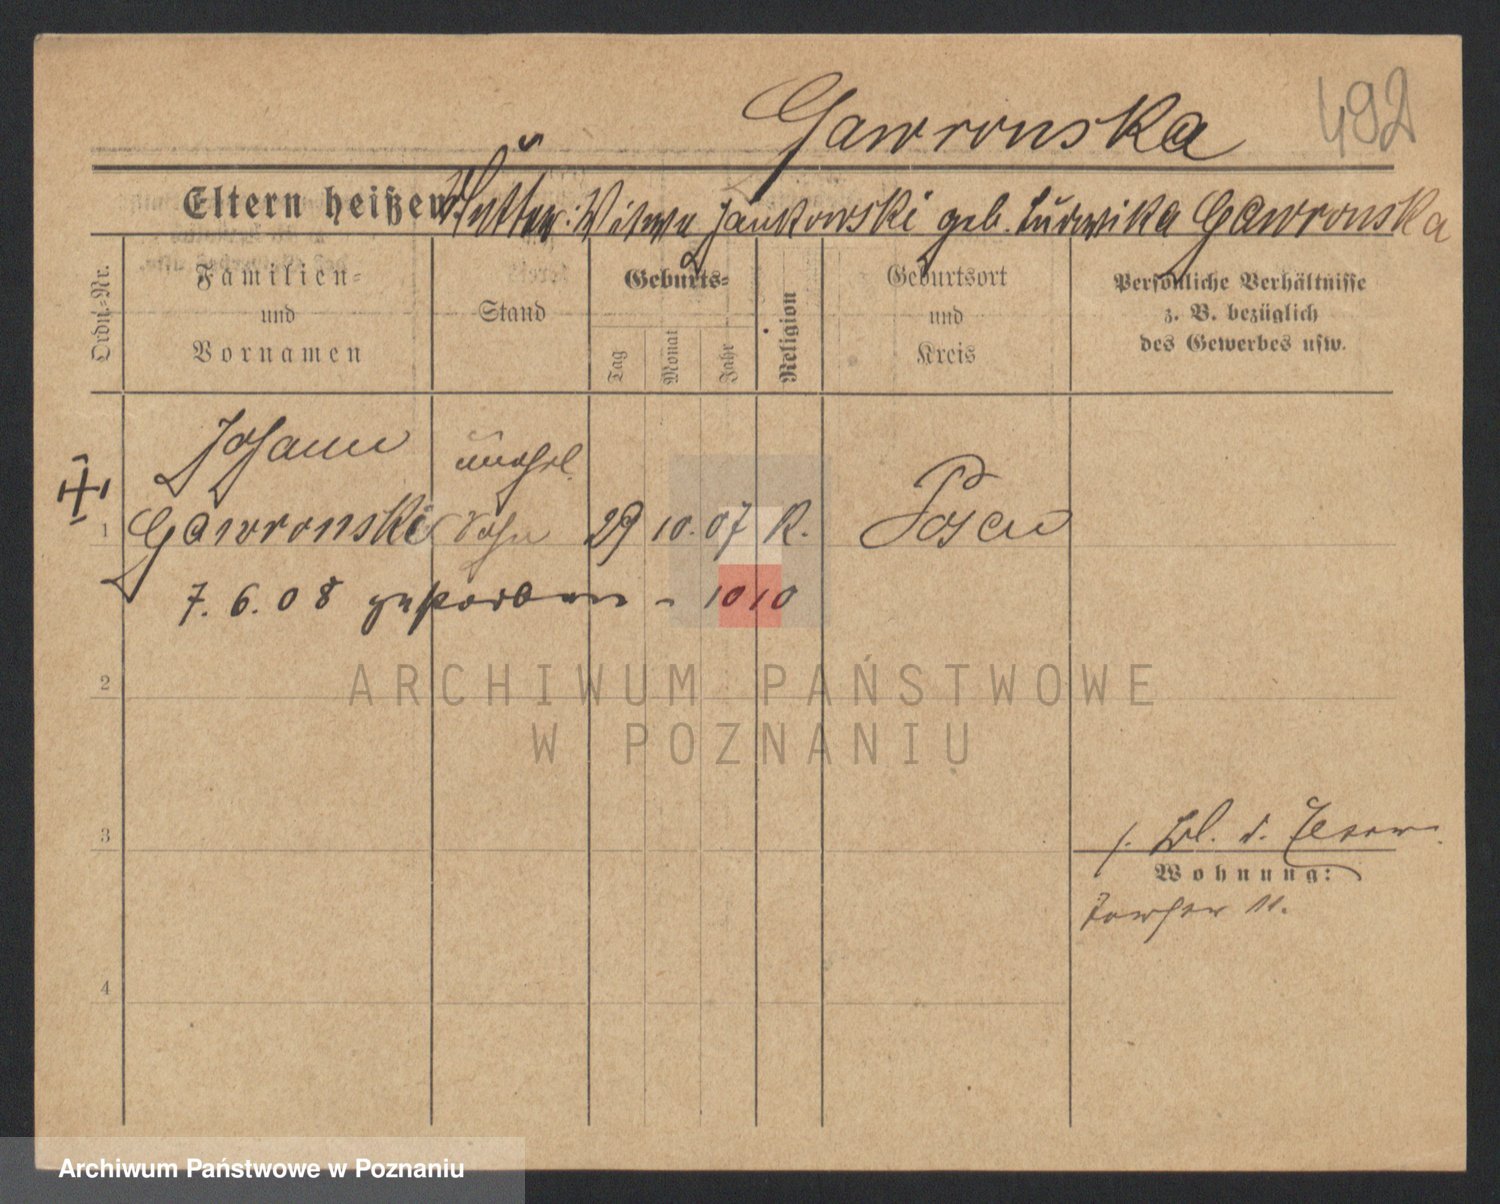 492
Gawronska
Eltern heißen Mutter: Witwe Jankowski geb. Ludwika Gawronska
Ordn.-Nr.
Familien-
und
Vornamen
Stand
Geburts-
Tag
Monat
Jahr
Religion
Geburtsort
und
Kreis
Persönliche Verhältnisse
z. B. bezüglich
des Gewerbes usw.
Johann unehel.
1 Gawronski Sohn 29 10. 07 K. Posen
7. 6. 08 gestorben - 1010
2
ARCHIWUM PAŃSTWOWE
W POZNANIU
3
Bl. d.
Wohnung:
11.
4
Archiwum Państwowe w Poznaniu